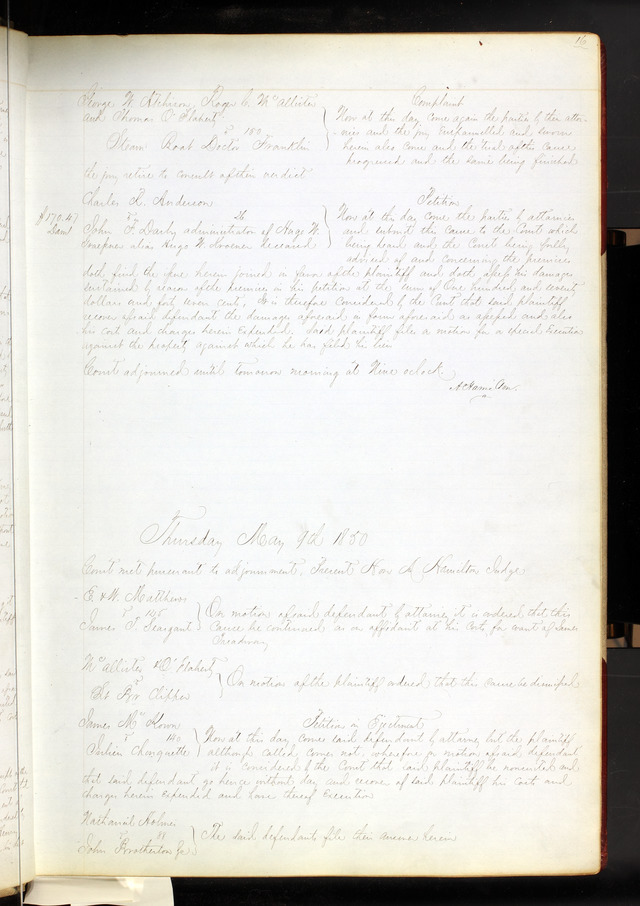 16
George W. Atchison, Roger C. McAllister
and Thomas O'Flaherty
vs 150
Steam Boat Doctor Franklin
Complaint
Now at this day come again the parties by their attor-
nies and the jury Empannelled and sworn
herein also come and the trial of this cause
progressed and the same being finished
the jury retire to consult of their verdict
Charles R. Anderson
vs 26
$170.47
Dam
John F. Darby administrator of Hugo W.
alias Hugo W. deceased
Petition
Now at this day come the parties by attornies
and submit this cause to the Court which
being heard and the Court being fully
advised of and concerning the premises
doth find the issue herein joined in favor of the plaintiff and doth assess his damages
sustained by reason of the premises in his petition at the sum of One hundred and seventy
dollars and forty seven cents, It is therefore considered by the Court that said plaintiff
recover of said defendant the damages aforesaid in form aforesaid as assessed and also
his cost and charges herein Expended. Said plaintiff files a motion for a special Execution
against the property against which he has filed his lien
Court adjourned until tomorrow morning at Nine oclock
A. Hamilton
Thursday May 9th 1850
Court met pursuant to adjournment. Present Hon A Hamilton Judge
E & W. Matthews
vs 145
James T. Seargant
On motion of said defendant by attorney it is ordered that this
cause be continued as on affidavit at his Costs for want of James
Treadway
McAllister & O'Flaherty
vs
St Br Clipper
On motion of the plaintiff ordered that this cause be dismissed
James McKown
vs 140
Julien Choquette
Petition in Ejectment
Now at this day comes said defendant by attorney but the plaintiff
although called comes not, wherefore on motion of said defendant
it is considered by the Court that said plaintiff be nonsuited and
that said defendant go hence without day and recover of said plaintiff his costs and
charges herein Expended and have thereof Execution
Nathaniel Holmes
vs 88
John Brotherton &c
The said defendants file their answer herein